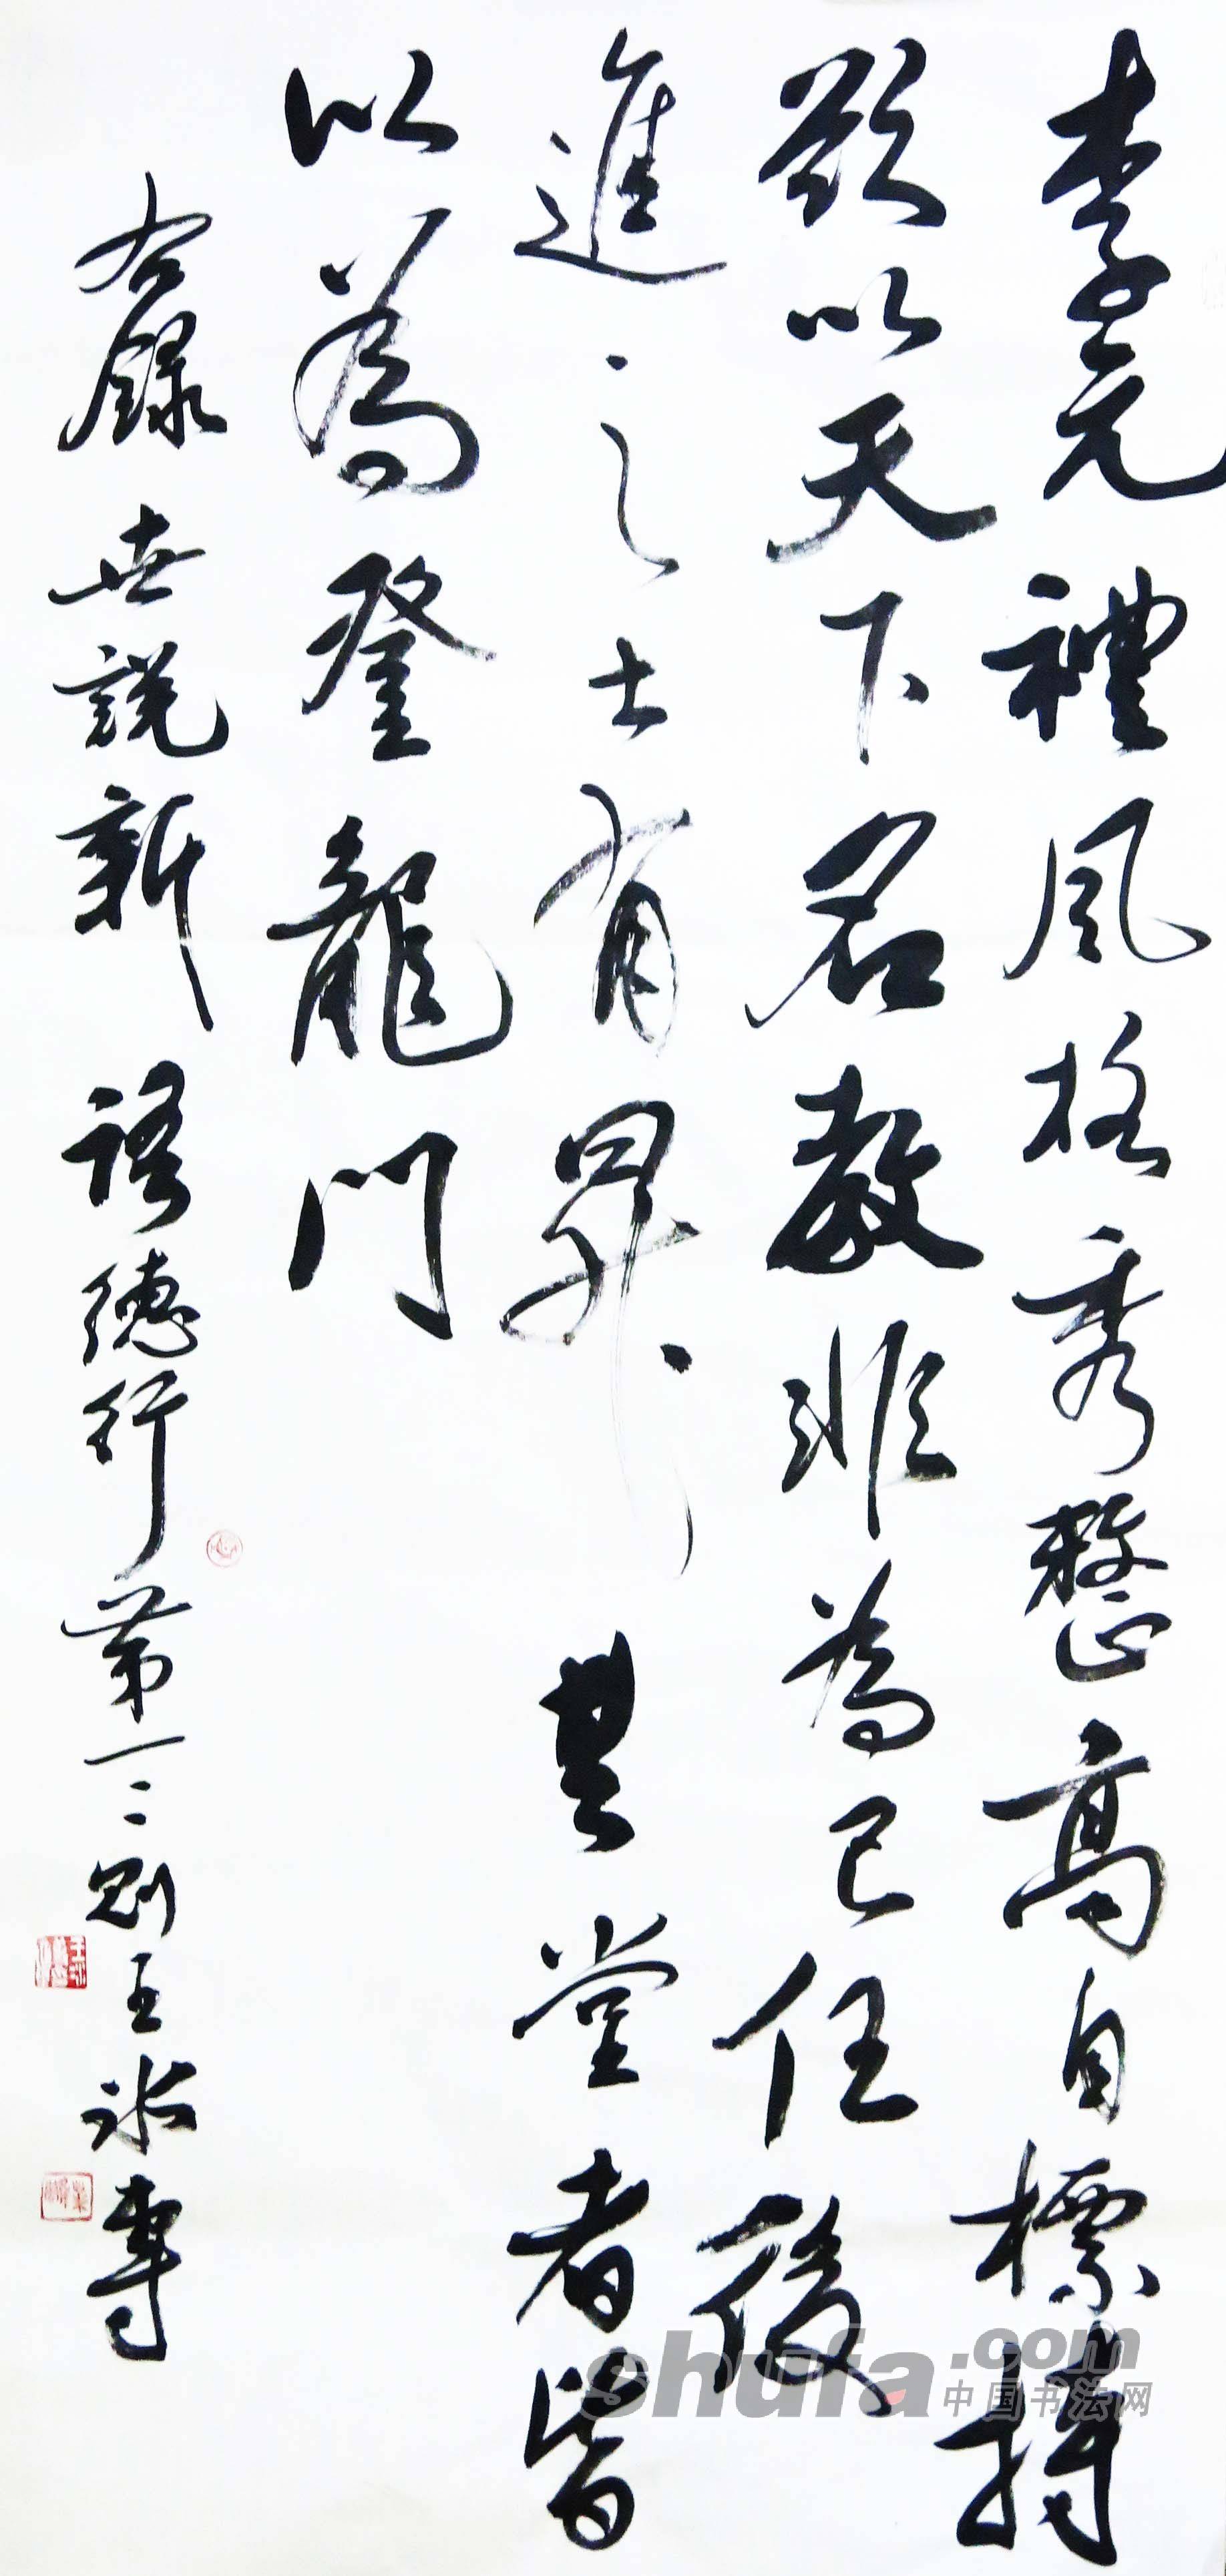 李元禮風格秀整高自標持
欲以天下名教非為己任後
進之士有昇其堂者皆
以為登龍門
右錄世說新語德行第一二則王冰
shufa.com
中国书法网